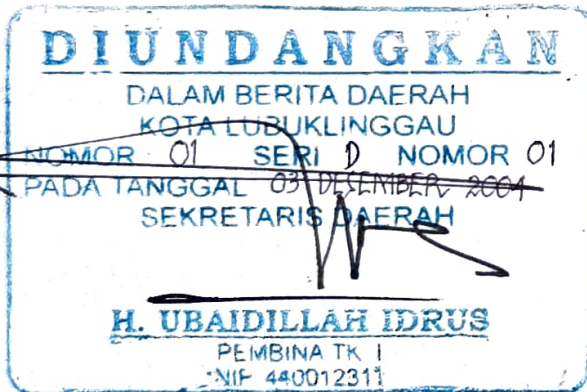 DIUNDANGKAN
DALAM BERITA DAERAH
KOTA LUBUKLINGGAU
NOMOR 01 SERI D NOMOR 01
PADA TANGGAL 03 DESEMBER 2004
SEKRETARIS DAERAH
H. UBAIDILLAH IDRUS
PEMBINA TK I
NIP 440012311